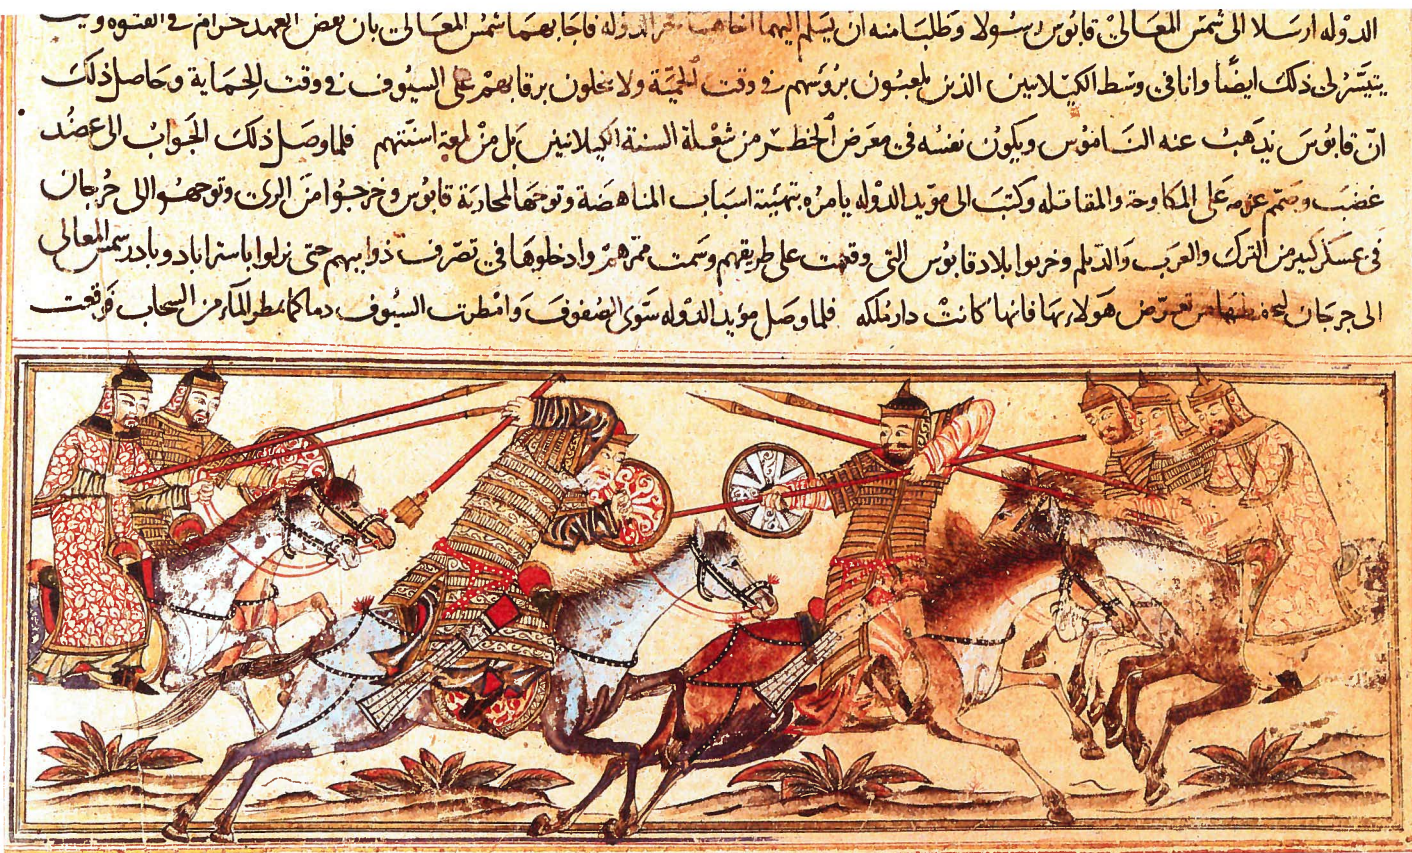 الدوله ارسلا الى شمس المعالي قابوس رسولا وطلبا منه ان يسلم اليهما اخاهما فخر الدوله فاجابهما شمس المعالي بان نقض العهد حرام في الفتوه
يتيسر لي ذلك ايضا وانا في وسط الكيلانيين الذين يلعبون برؤسهم في وقت الحمية ولا يبخلون برقابهم على السيوف في وقت الحماية وحاصل ذلك
ان قابوس يذهب عنه الناموس ويكون نفسه في معرض الخطر من شعلة السنة الكيلانيين بل من لمعة اسنتهم فلما وصل ذلك الجواب الى عضد
غضب وصمم عزمه على المكاوحة والمقاتله وكتب الى مويد الدوله يامره بتهيئة اسباب المناهضة وتوجها لمحاربة قابوس وخرجوا من الري وتوجهوا الى جرجان
في عسكر كبير من الترك والعرب والديلم وخربوا بلاد قابوس التي وقعت على طريقهم وسمت ممرهم وادخلوها في تصرف ذوابهم حتى نزلوا باستراباد وبادر شمس المعالي
الى جرجان ليحفظها من تعرض هولاء بها فانها كانت دار ملكه فلما وصل مؤيد الدوله سوى الصفوف وامطرت السيوف دما كما يمطر الماء من السحاب فوقعت